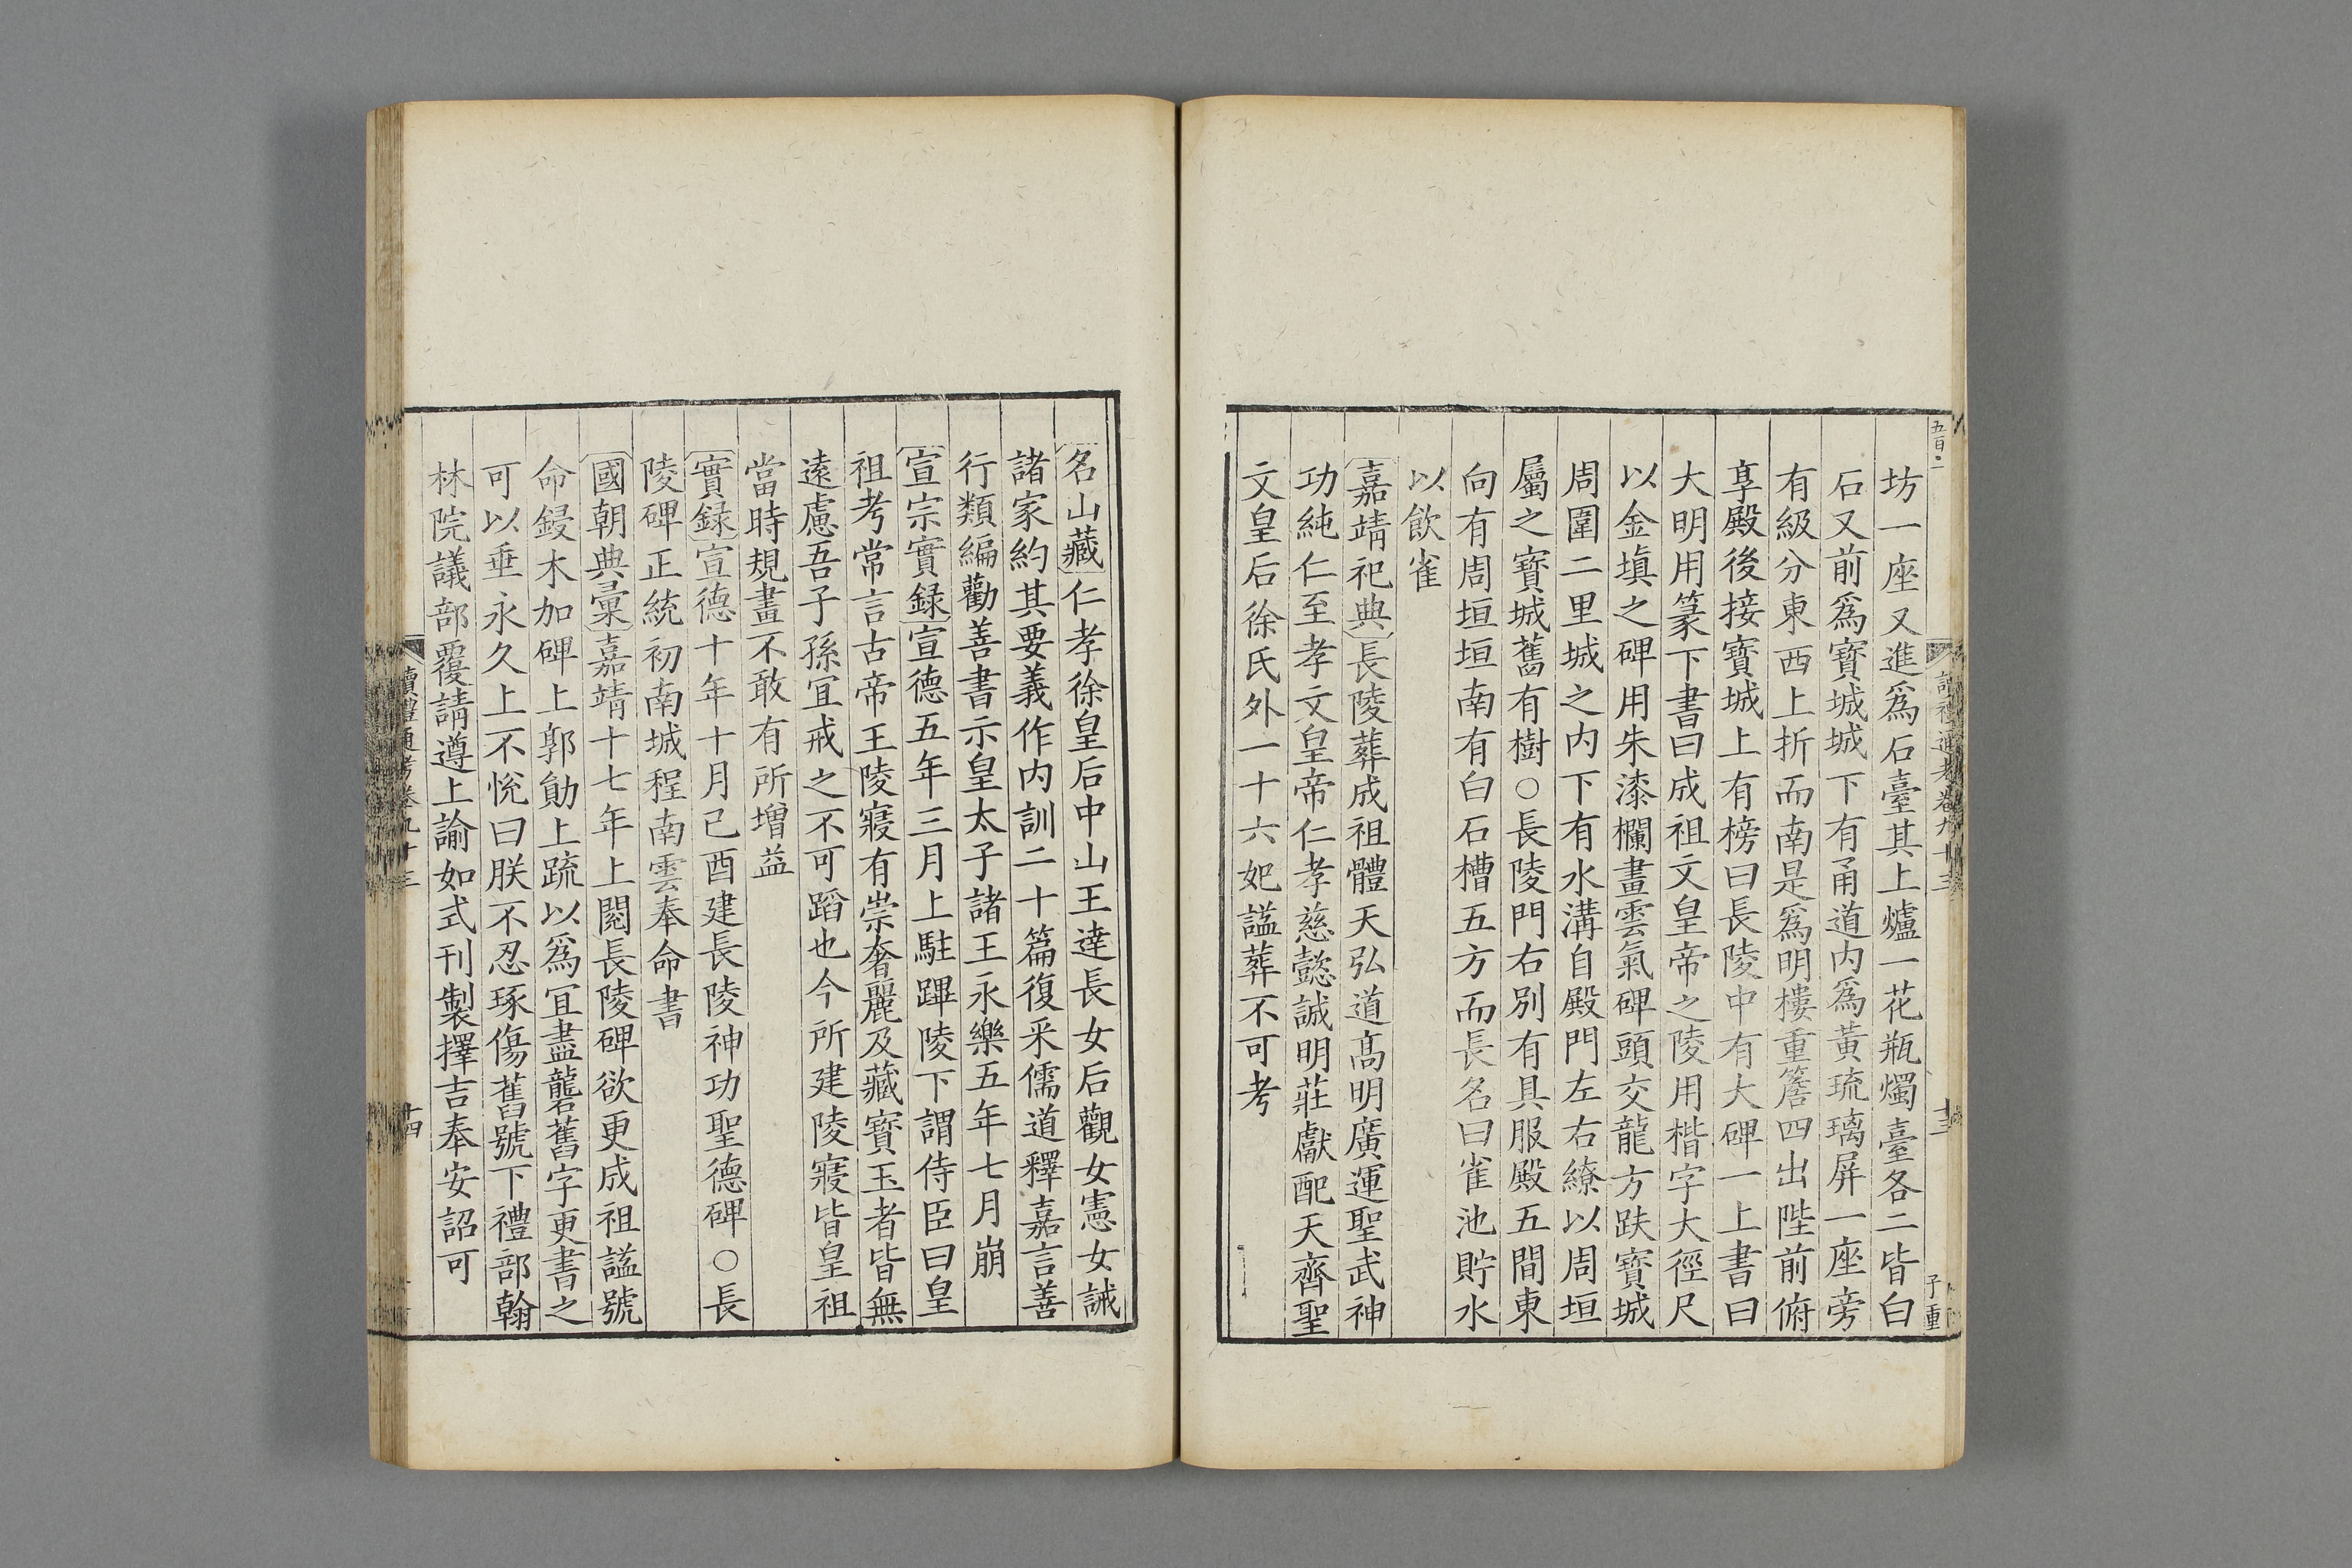 五百二
讀禮通考卷九十三
十三
子重
坊一座又進爲石臺其上爐一花瓶燭臺各二皆白
石又前爲寶城城下有甬道内爲黃琉璃屏一座旁
有級分東西上折而南是爲明樓重簷四出陛前俯
享殿後接寶城上有榜曰長陵中有大碑一上書曰
大明用篆下書曰成祖文皇帝之陵用楷字大徑尺
以金填之碑用朱漆欄畫雲氣碑頭交龍方趺寶城
周圍二里城之内下有水溝自殿門左右繚以周垣
屬之寶城舊有樹○長陵門右別有具服殿五間東
向有周垣垣南有白石槽五方而長名曰雀池貯水
以飲雀
嘉靖祀典長陵葬成祖體天弘道高明廣運聖武神
功純仁至孝文皇帝仁孝慈懿誠明莊獻配天齊聖
文皇后徐氏外一十六妃諡葬不可考
名山藏仁孝徐皇后中山王達長女后觀女憲女誡
諸家約其要義作内訓二十篇復釆儒道釋嘉言善
行類編勸善書示皇太子諸王永樂五年七月崩
宣宗實録宣德五年三月上駐蹕陵下謂侍臣曰皇
祖考常言古帝王陵寢有崇奢麗及藏寶玉者皆無
遠慮吾子孫宜戒之不可蹈也今所建陵寢皆皇祖
當時規畫不敢有所增益
實録宣德十年十月己酉建長陵神功聖德碑○長
陵碑正統初南城程南雲奉命書
國朝典彙嘉靖十七年上閱長陵碑欲更成祖謚號
命鋟木加碑上郭勛上疏以爲宜盡礱舊字更書之
可以垂永久上不悅曰朕不忍琢傷舊號下禮部翰
林院議部覆請遵上諭如式刊製擇吉奉安詔可
讀禮通考卷九十三
十四